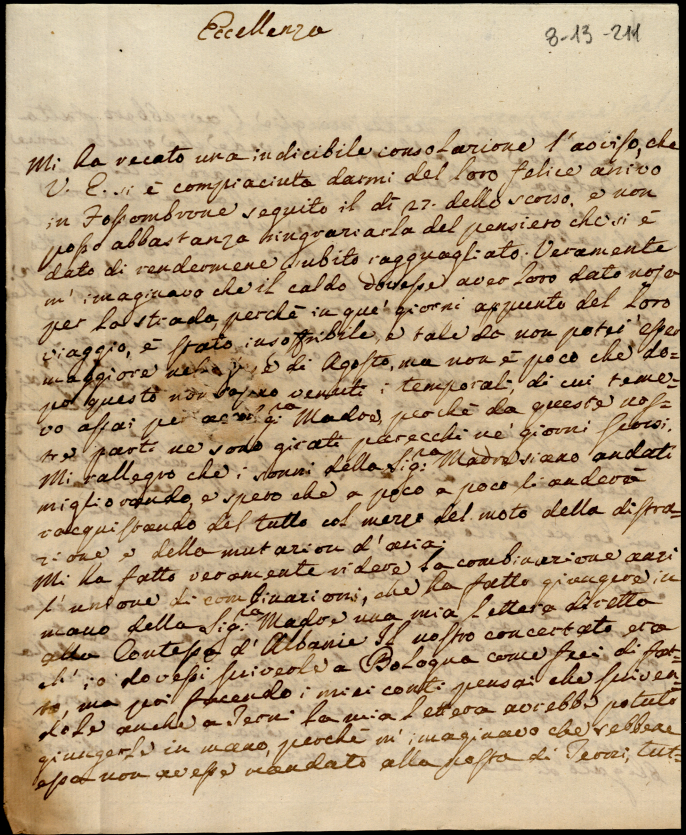 Eccellenza
8-13-211
Mi ha recato una indicibile consolazione l'avviso, che
V. E. si è compiaciuta darmi del loro felice arrivo
in Fossombrone seguito il dì 27. dello scorso, e non
posso abbastanza ringraziarla del pensiero che si è
dato di rendermene subito ragguagliato. Veramente
m'imaginavo che il caldo dovesse aver loro dato noja
per la strada, perchè in que' giorni appunto del loro
viaggio, è stato insoffribile, e tale da non poter esser
maggiore di Agosto, ma non è poco che do-
po questo non siano venuti i temporali, di cui teme-
vo assai per Madre, perchè da queste nos-
tre parti ne sono girati parecchi ne' giorni scorsi.
Mi rallegro che i sonni della Sig:ra Madre siano andati
migliorando, e spero che a poco a poco li anderà
racquistando del tutto col mezzo del moto della distra-
zione e della mutazion d'aria.
Mi ha fatto veramente ridere la combinazione anzi
l'unione di combinazioni, che ha fatto giungere in
mano della Sig:ra Madre una mia lettera diretta
alla Contessa d'Albanie. Il nostro concertato era
ch'io dovessi scriverle a Bologna come feci di fat-
to, ma poi facendo i miei conti pensai che scriven-
dole anche a Terni la mia lettera avrebbe potuto
giungerle in mano, perchè m'imaginavo che sebbene
essa non avesse mandato alla posta di Terni, tut-